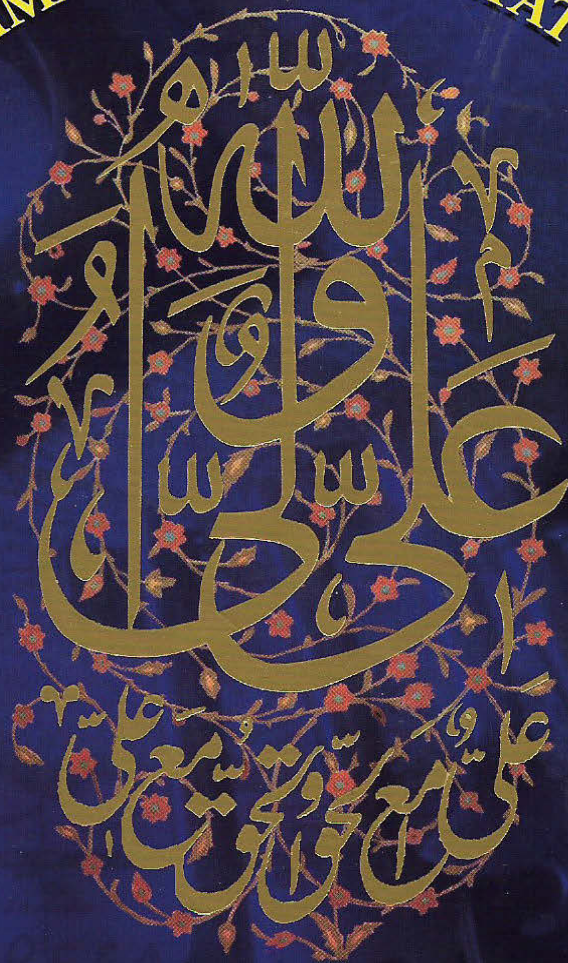 علی ولی الله
علی مع الحق والحق مع علی